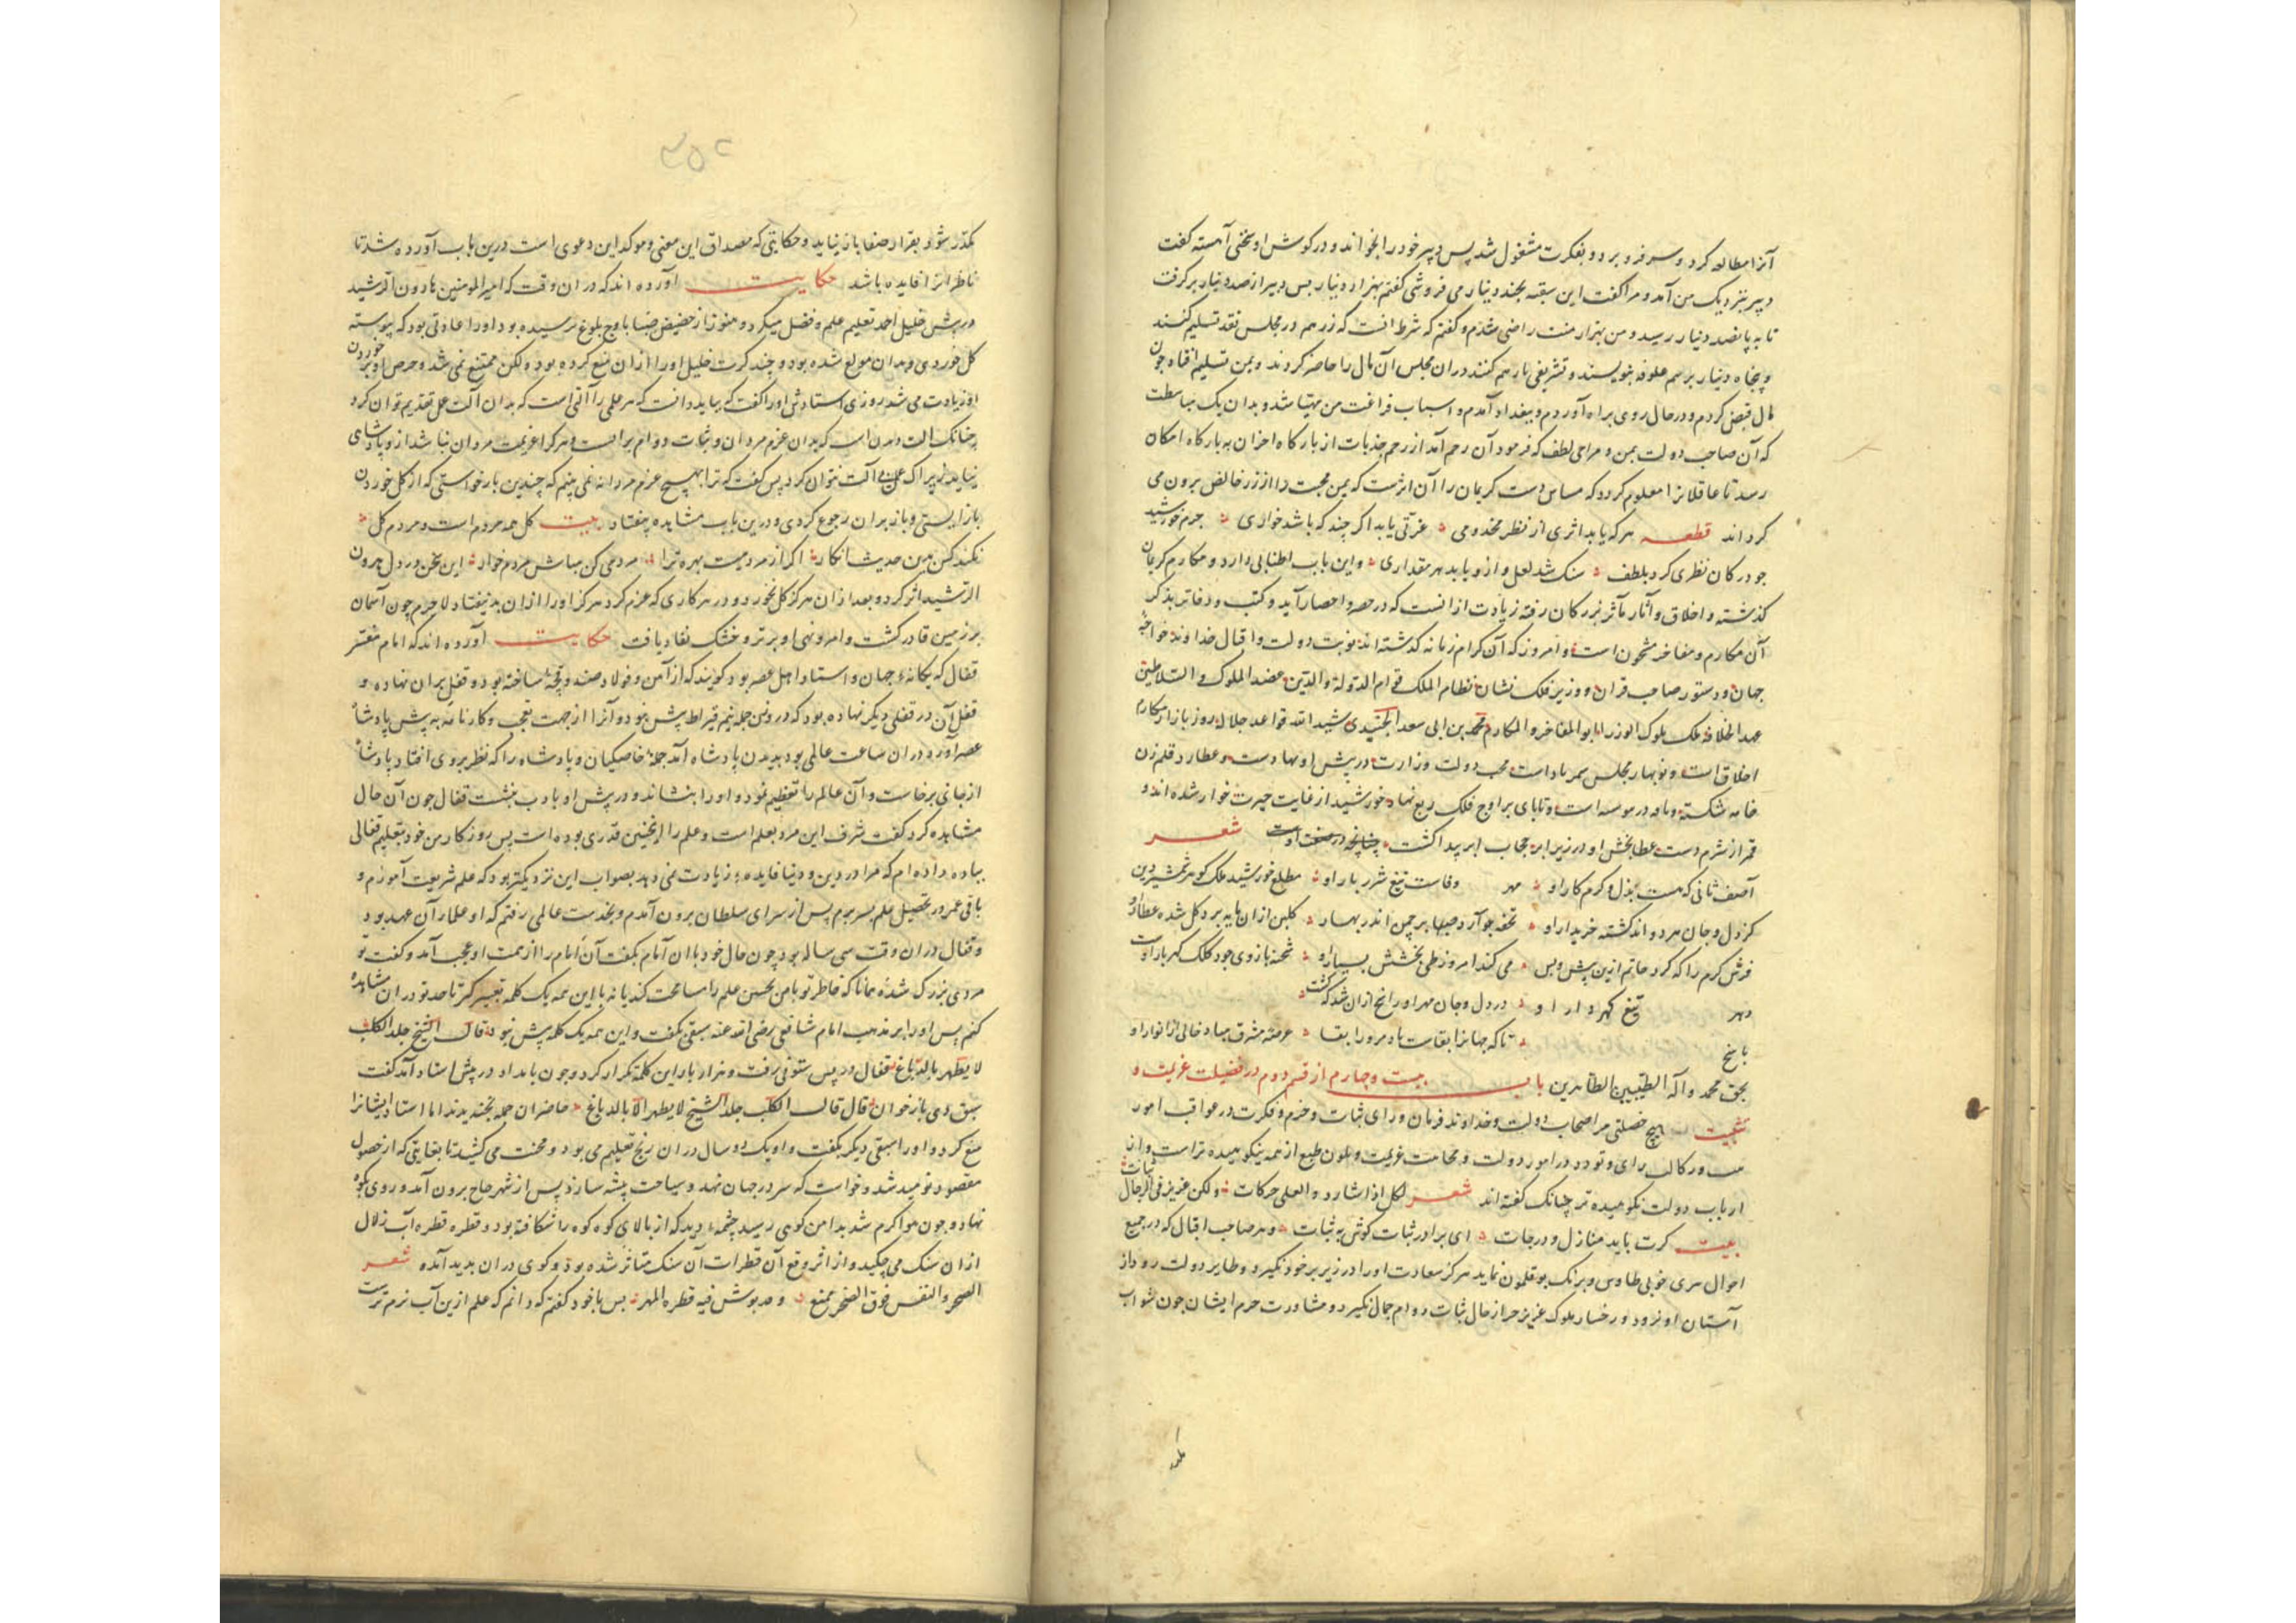 آنرا مطالعه کرد و سر فرو برد و بفکرت مشغول شد پس دبیر خود را بخواند و در کوش او سخنی آهسته کفت
دبیر بنزدیک من آمد و مرا کفت این سبقه بچند دینار می فروشی کفتم بهزار دینار پس دبیر از صد دینار بر کرفت
تا به پانصد دینار رسید و من بهزار منت راضی شدم و کفتم که شرط انست که زر هم در مجلس نقد تسلیم کنند
و پنجاه دینار برسم علوفه بنویسند و تشریفی بار هم کنند در ان مجلس آن مال را حاضر کردند و بمن تسلیم افتاد چون
مال قبض کردم و در حال روی براه آوردم و ببغداد آمدم و اسباب فراغت من مهیا شد و بدان یک بساطت
که آن صاحب دولت بمن و مراحی لطف که فرمود آن رحم آمد از رحم جذبات از بارکاه احزان به بارکاه امکان
رسد تا عاقلانرا معلوم کردد که مساس دست کریمان را آن اثرست که یمن محبت را از زر خالص برون می
کرداند قطعه هر که یابد اثری از نظر مخدومی عزتی یابد اکر چند که باشد خواری جرم خورشید
جو در کان نظری کرد بلطف سنک شد لعل و ازو یابد هر مقداری و این باب اطنابی دارد و مکارم کریمان
کذشته و اخلاق و آثار مآثر بزرکان رفته زیادت از انست که در حصر و احصار آید و کتب و دفاتر بذکر
آن مکارم و مفاخر مشحون است و امروز که آن کرام زمانه کذشته اند نوبت دولت و اقبال خداوند خواجه
جهان و دستور صاحب قران و وزیر فلک نشان نظام الملک قوام الدولة والدین عضد الملوک و السلاطین
عهد الخلافه ملک ملوک الوزرا ابو المفاخر و المکارم محمد بن ابی سعد الجنیدی شید الله قواعد جلاله روز بازار مکارم
اخلاق است و نوبهار مجلس سمر باد است محب دولت وزارت در پیش او نهاد دست و عطارد قلم زن
خامه شکسته و ماه در موسه است و تابای بر اوج فلک ربع نهاد خورشید از غایت حیرت خوار شده اند و
قمر از شرم دست عطا بخش او در زیر ابر حجاب ابر پیدا کشت چنانچه در صفت اوست شعر
آصف ثانی که هست بذل و کرم کار او مهر وفاست تیغ شرر بار او مطلع خورشید ملک کوهر شمشیر دین
کز دل و جان هر دو اند کشته خریدار او تحفه جو آرد صبا بر چمن اندر بهار کلبن ازان مایه برد کل شده عطار او
فرش کرم را که کرد حاتم ازین پیش و پس می کند امروز طی بخشش بسیار او شحنه بازوی جود کلک کهر بار اوست
دهر تیغ کهر وار او در دل و جان مهر او رانح ازان شد که کشت
بانح تا که جهانرا بقاست باد مرو را بقا عرصه مشرق مباد خالی از انوار او
بحق محمد و آله الطیبین الطاهرین باب بیست و چهارم از قسم دوم در فضیلت عزیمت و
تثبیت هیچ خصلتی مر اصحاب دولت و خداوند فرمان و رای ثبات و حزم و فکرت در عواقب امور
و رکال رای و تودد در امور دولت و محامت عزیمت و تلون طبع از همه نیکوهیده تر است و از
ارباب دولت نکوهیده تر چنانک کفته اند شعر لکل اذا شارد و العلی حرکات ولکن عزیز فی الرجال ثبات
بیت کرت باید منازل و درجات ای برادر ثبات کوش به ثبات و هر صاحب اقبال که در جمیع
احوال سری خوبی طاوس و برنک بوقلمون نماید هرکز سعادت او را در زیر پر خود نکیرد و طایر دولت روذ از
آستان او نرود و رخسار ملوک عزیز جز از خال ثبات دوام جمال نکیرد و مشاورت حرم ایشان چون شواب
مکدر شود بقرار صفا باز نیاید و حکایتی که مصداق این معنی و موکد این دعوی است درین باب آورده شد تا
ناظرانرا فایده باشد حکایت آورده اند که در ان وقت که امیر المومنین هارون الرشید
در پیش خلیل احمد تعلیم علم و فضل میکرد و هنوز از حضیض صبا باوج بلوغ نرسیده بود او را عادتی بود که پیوسته
کل خوردی و بدان مولع شده بود و چند کرت خلیل او را از ان منع کرده بود ولکن ممتنع نمی شد و حرص او بر خوردن
آن زیادت می شد روزی استادش او را کفت که بباید دانست که هر عملی را آلتی است که بدان آلت عمل تقدیم توان کرد
چنانک آلت مردان است که بدان عزم مردان و ثبات و دوام بر است و هر کرا عزیمت مردان نباشد از و پادشاهی
نیاید زیرا که عمل بی آلت نتوان کرد پس کفت که ترا بهیچ عزم مردانه نمی بینم که چندین بار خواستی که از کل خوردن
باز ایستی و باز بر ان رجوع کردی و درین باب مشابده بیفتاد بیت کل همه مردم است و مردم کل
نکند کس بدین حدیث انکار اکر از مردمیت بهره ترا مردمی کن مباش مردم خوار این سخن در دل هرون
الرشید اثر کرد و بعد از ان هرکز کل نخورد و در هر کاری که عزم کرد هرکز او را از ان بد نیفتاد لاجرم چون آسمان
بر زمین قادر کشت و امر و نهی او بر تر و خشک نفاد یافت حکایت آورده اند که امام معتبر
قفال که یکانهٔ جهان و استاد اهل عصر بود کویند که از آهن و فولاد صندوقچهٔ ساخته بود و قفل بران نهاده و
قفل آن در قفلی دیکر نهاده بود که در وزن جمله نیم قیراط بیش نبود و آنرا از جهت تعجب و کارنامه به پیش پادشاه
عصر آورد در ان ساعت عالمی بود بدیدن پادشاه آمد جملهٔ خاصیکیان و پادشاه را که نظر بر وی افتاد پادشاه
از جای برخاست و آن عالم را تعظیم نمود و او را بنشاند و در پیش او بادب بنشست قفال جون آن حال
مشاهده کرد کفت شرف این مرد بعلم است و علم را اینچنین قدری بوده است پس روزکار من خود بتعلیم قفالی
بباده داده ام که مرا در دین و دنیا فایدهٔ زیادت نمی دهد بصواب این نزدیکتر بود که علم شریعت آموزم و
باقی عمر در تحصیل علم بسر برم پس از سرای سلطان برون آمدم و بخدمت عالمی رفتم که او علمار آن عهد بود
و قفال در ان وقت سی ساله بود چون حال خود با ان امام بکفت آن امام را از همت او عجب آمد و کفت تو
مردی بزرک شدهٔ همانا که خاطر تو با من تحسین علم را مسامحت کند یا نه با این همه یک کلمه تعبیر کنم تا حد تو در ان مشاهده
کنم پس او را بر مذهب امام شافعی رضی الله عنه سبقی بکفت و این همه یک کلمه بیش نبود قال الشیخ جلد الکلب
لا یطهر بالدباغ قفال در پس ستونی رفت و هزار بار این کلمه تکرار کرد و جون بامداد در پیش استاد آمد کفت
سبق دی باز خوان قال قال الکلب جلد الشیخ لا یطهر الا بالدباغ حاضران جمله بخندیدند اما استاد ایشانرا
منع کرد و او را سبقی دیکر بکفت و او یک دو سال در ان رنج تعلیم می بود و محنت می کشید تا بغایتی که از حصول
مقصود نومید شد و خواست که سر در جهان نهد و سیاحت پیشه سازد پس از شهر حاج برون آمد و روی بکوه
نهاد و جون هوا کرم شد بدامن کوهی رسید چشمهٔ دید که از بالای کوه کوه را شکافته بود و قطره قطره آب زلال
از ان سنک می چکید و از اثر وقع آن قطرات آن سنک متاثر شده بود و کوی در ان بدید آمد شعر
الصحر و النقس فوق الصخر یمنع و قد بوش فیه قطره المهر پس با خود کفتم که دانم که علم از ین آب نرم تر نیست